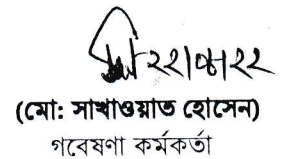 ২২।০৮।২২
(মো: সাখাওয়াত হোসেন)
গবেষণা কর্মকর্তা